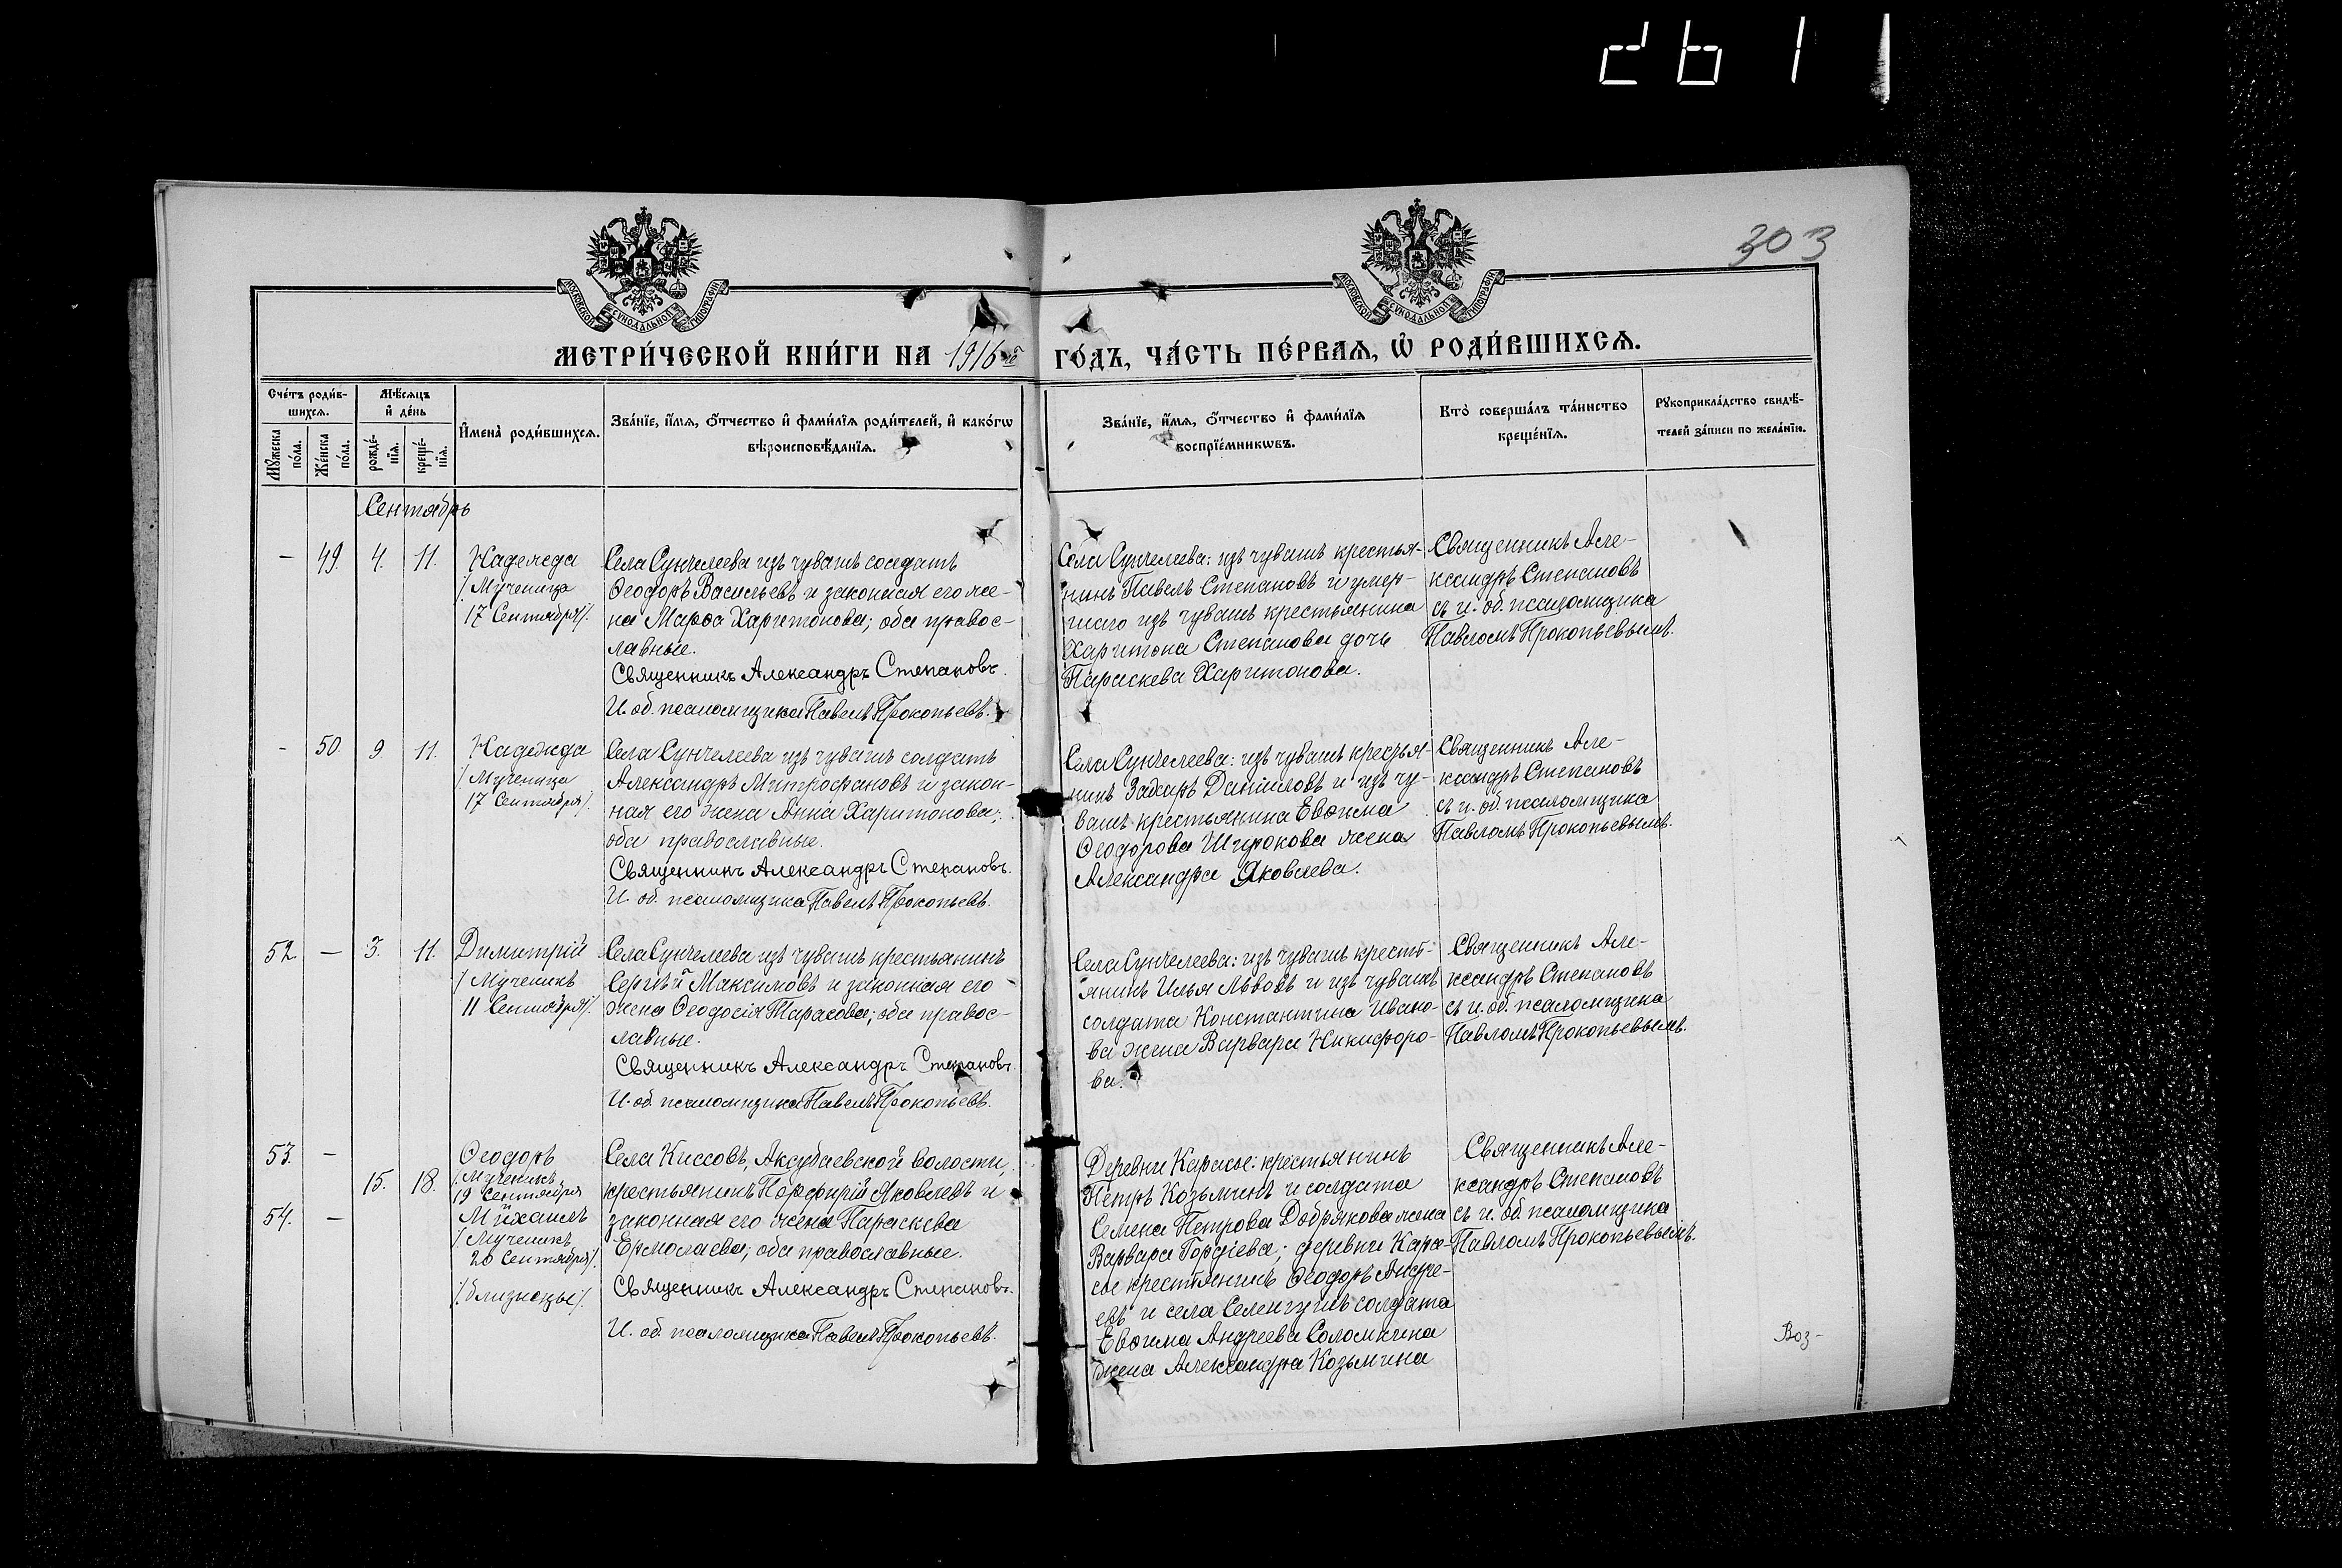 303
МЕТРИ́ЧЕСКОЙ КНИ́ГИ НА 1916 й ГО́ДЪ, ЧА́СТЬ ПЕ́РВАѦ, Ѡ҆ РОДИ́ВШИХСѦ.
Сче́тъ роди́в-
шихсѧ.
Мꙋ́жеска
по́ла.
Же́нска
по́ла.
Мѣ́сѧцъ
и҆ де́нь
рожде́-
нїѧ.
креще́-
нїѧ.
И҆мена̀ роди́вшихсѧ.
Зва́нїе, и҆́мѧ, ѻ҆́тчество и҆ фами́лїѧ роди́телей, и҆ како́гѡ
вѣроисповѣ́данїѧ.
Зва́нїе, и҆́мѧ, ѻ҆́тчество и҆ фами́лїѧ
воспрїе́мникѡвъ.
Кто̀ соверша́лъ та́инство
креще́нїѧ.
Рꙋкоприкла́дство свидѣ́-
телей за́писи по жела́нїю.
Сентябрь
— 49. 4. 11.
Надежда
/Мученица
17 Сентября/.
Села Сунчелеева изъ чувашъ солдатъ
Ѳеодоръ Васильевъ и законная его же-
на Марѳа Харитонова; оба правос-
лавные.
Священникъ Александръ Степановъ.
И. об. псаломщика Павелъ Прокопьевъ.
Села Сунчелеева: изъ чувашъ крестья-
нинъ Павелъ Степановъ и умер-
шаго изъ чувашъ крестьянина
Харитона Степанова дочь
Параскева Харитонова.
Священникъ Але-
ксандръ Степановъ
съ и. об. псаломщика
Павломъ Прокопьевымъ.
- 50. 9. 11.
Надежда
/Мученица
17 Сентября/.
Села Сунчелеева изъ чувашъ солдатъ
Александръ Митрофановъ и закон-
ная его жена Анна Харитонова;
оба православные.
Священникъ Александръ Степановъ.
И. об. псаломщика Павелъ Прокопьевъ.
Села Сунчелеева: изъ чувашъ крестья-
нинъ Захаръ Даниловъ и изъ чу-
вашъ крестьянина Евѳима
Ѳеодорова Широкова жена
Александра Яковлева.
Священникъ Але-
ксандръ Степановъ
съ и. об. псаломщика
Павломъ Прокопьевымъ.
52. — 3. 11.
Димитрій
/Мученикъ
11 Сентября/.
Села Сунчелеева изъ чувашъ крестьянинъ
Сергѣй Максимовъ и законная его
жена Ѳеодосія Тарасова; оба правос-
лавные.
Священникъ Александръ Степановъ.
И. об. псаломщика Павелъ Прокопьевъ.
Села Сунчелеева: изъ чувашъ кресть-
янинъ Илья Львовъ и изъ чувашъ
солдата Константина Ивано-
ва жена Варвара Никифоро-
ва.
Священникъ Але-
ксандръ Степановъ
съ и. об. псаломщика
Павломъ Прокопьевымъ.
53. —
15. 18.
54. —
Ѳеодоръ
/Мученикъ
19 Сентября
и
Михаилъ
/Мученикъ
20 Сентября/.
/близнецы/.
Села Киссовъ, Аксубаевской волости,
крестьянинъ Порфирій Яковлевъ и
законная его жена Параскева
Ермолаева; оба православные.
Священникъ Александръ Степановъ.
И. об. псаломщика Павелъ Прокопьевъ.
Деревни Карасы: крестьянинъ
Петръ Козьминъ и солдата
Семена Петрова Добрякова жена
Варвара Гордіева; деревни Кара-
сы крестьянинъ Ѳеодоръ Андре-
евъ и села солдата
Евѳима Андреева Соломкина
жена Александра Козьмина
Священникъ Але-
ксандръ Степановъ
съ и. об. псаломщика
Павломъ Прокопьевымъ.
Воз-